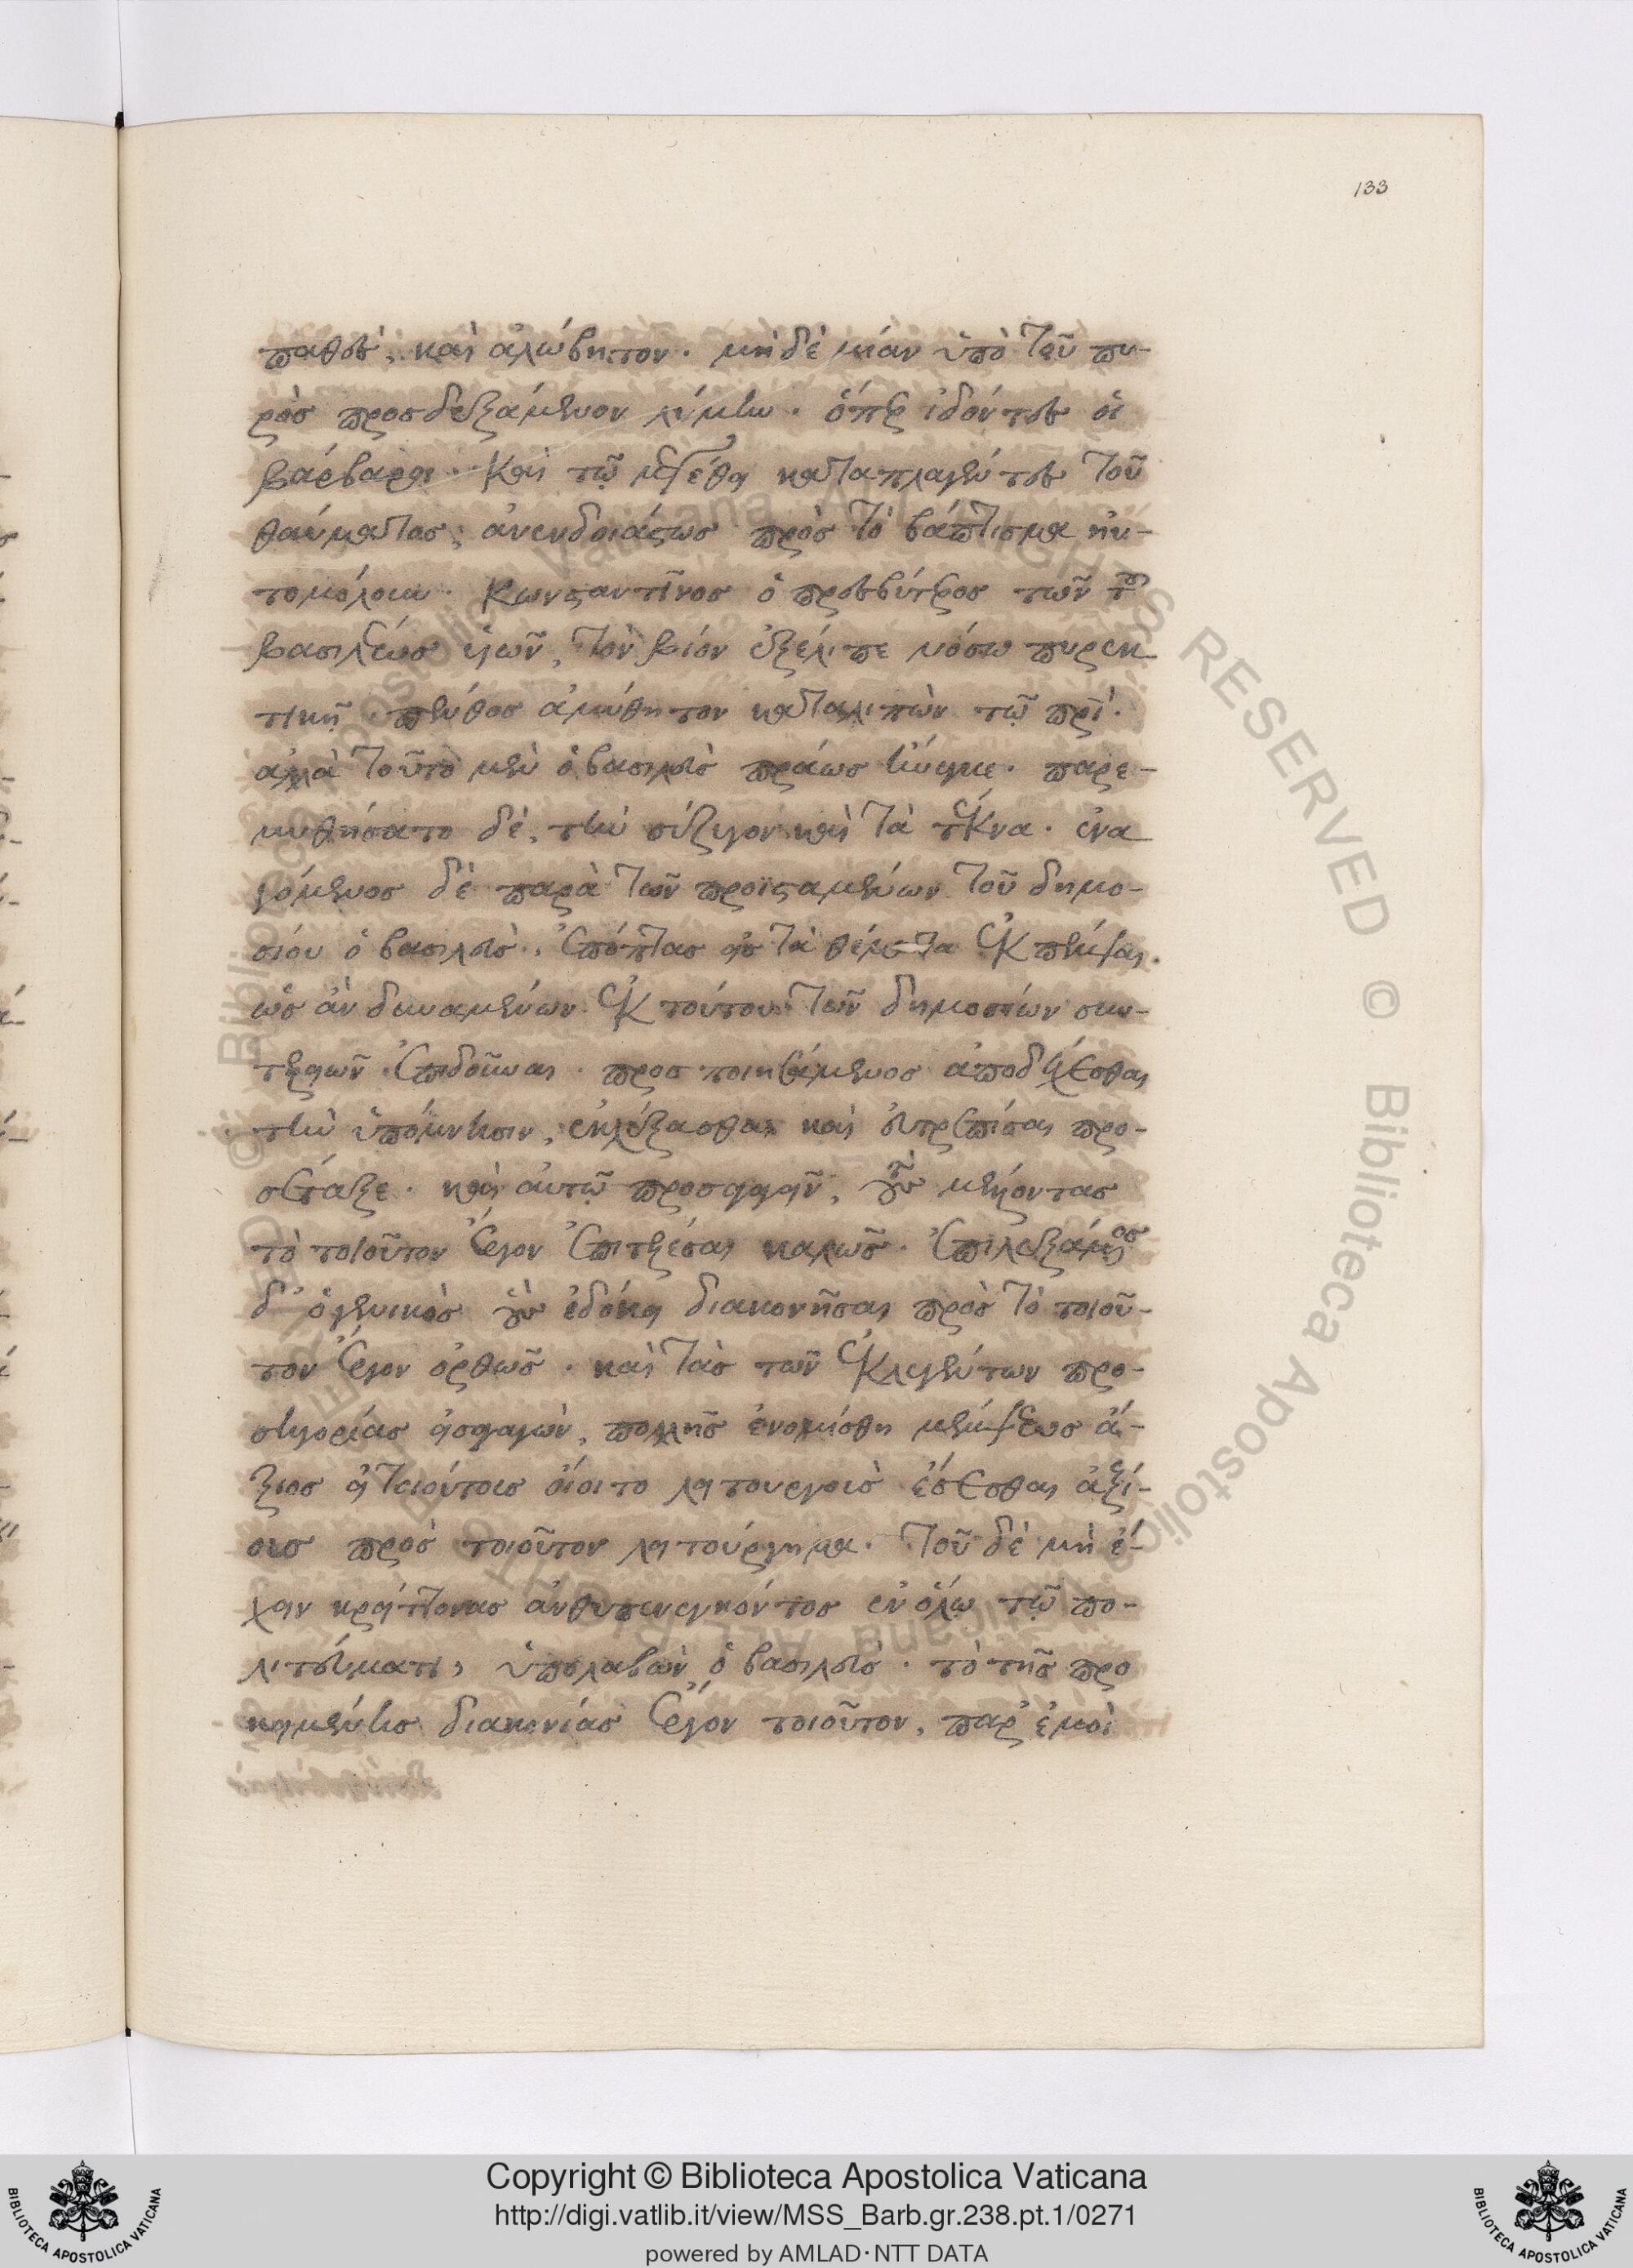 133
παθὲς, καὶ ἀλώβητον. μὴ δὲ μίαν ὑπὸ τοῦ πυ-
ρὸς προσδεξάμενον λύμην. ὅπερ ἰδόντες οἱ
βάρβαροι. καὶ τῷ μεγέθει καταπλαγέντες τοῦ
θαύματος, ἀνενδοιάστως πρὸς τὸ βάπτισμα ηὐ-
τομόλουν. Κωνσταντῖνος ὁ πρεσβύτερος τῶν τοῦ
βασιλέως υἱῶν, τὸν βίον ἐξέλιπε νόσω πυρεκ
τικῇ. πένθος ἀμύθητον καταλιπὼν τῷ πρὶ.
ἀλλὰ τοῦτο μὲν ὁ βασιλεὺς πράως ἤνεγκε. παρε-
μυθήσατο δὲ, τὴν σύζυγον καὶ τὰ τέκνα. ἐνα
γόμενος δὲ παρὰ τῶν προϊσταμένων τοῦ δημο-
σίου ὁ βασιλεὺς, ἐπόπτας εἰς τὰ θέματα ἐκπέμψαι.
ὡς ἂν δυναμένων ἐκ τούτου τῶν δημοσίων συν-
τελειῶν ἐπιδοῦναι. προσποιησάμενος ἀποδέχεσθαι
τὴν ὑπόμνησιν, ἐκλέξασθαι καὶ εὐτρεπίσαι προ-
σέταξε. καὶ αὐτῷ προσαγαγεῖν, τοὺς μέλλοντας
τὸ τοιοῦτον ἔργον ἐπιτελέσαι καλῶς. ἐπιλεξάμενος
δ' ὁ γενικὸς οὓς ἐδόκει διακονῆσαι πρὸς τὸ τοιοῦ-
τον ἔργον ὀρθῶς. καὶ τὰς τῶν ἐκλεγέντων προ-
σηγορίας εἰσαγαγὼν, πολλῆς ἐνομίσθη μέμψεως ἄ-
ξιος εἰ τοιούτοις οἴοιτο λειτουργοῖς ἔσεσθαι ἀξί-
οις πρὸς τοιοῦτον λειτούργημα. τοῦ δὲ μὴ ἔ-
χειν κρείττονας ἀνθυπενεγκόντος ἐν ὅλῳ τῷ πο-
λιτεύματι, ὑπολαβὼν ὁ βασιλεὺς. τὸ τῆς προ
κειμένης διακονίας ἔργον τοιοῦτον, παρ' ἐμοὶ
Copyright © Biblioteca Apostolica Vaticana
http://digi.vatlib.it/view/MSS_Barb.gr.238.pt.1/0271
powered by AMLAD·NTT DATA
BIBLIOTECA APOSTOLICA VATICANA
BIBLIOTECA APOSTOLICA VATICANA